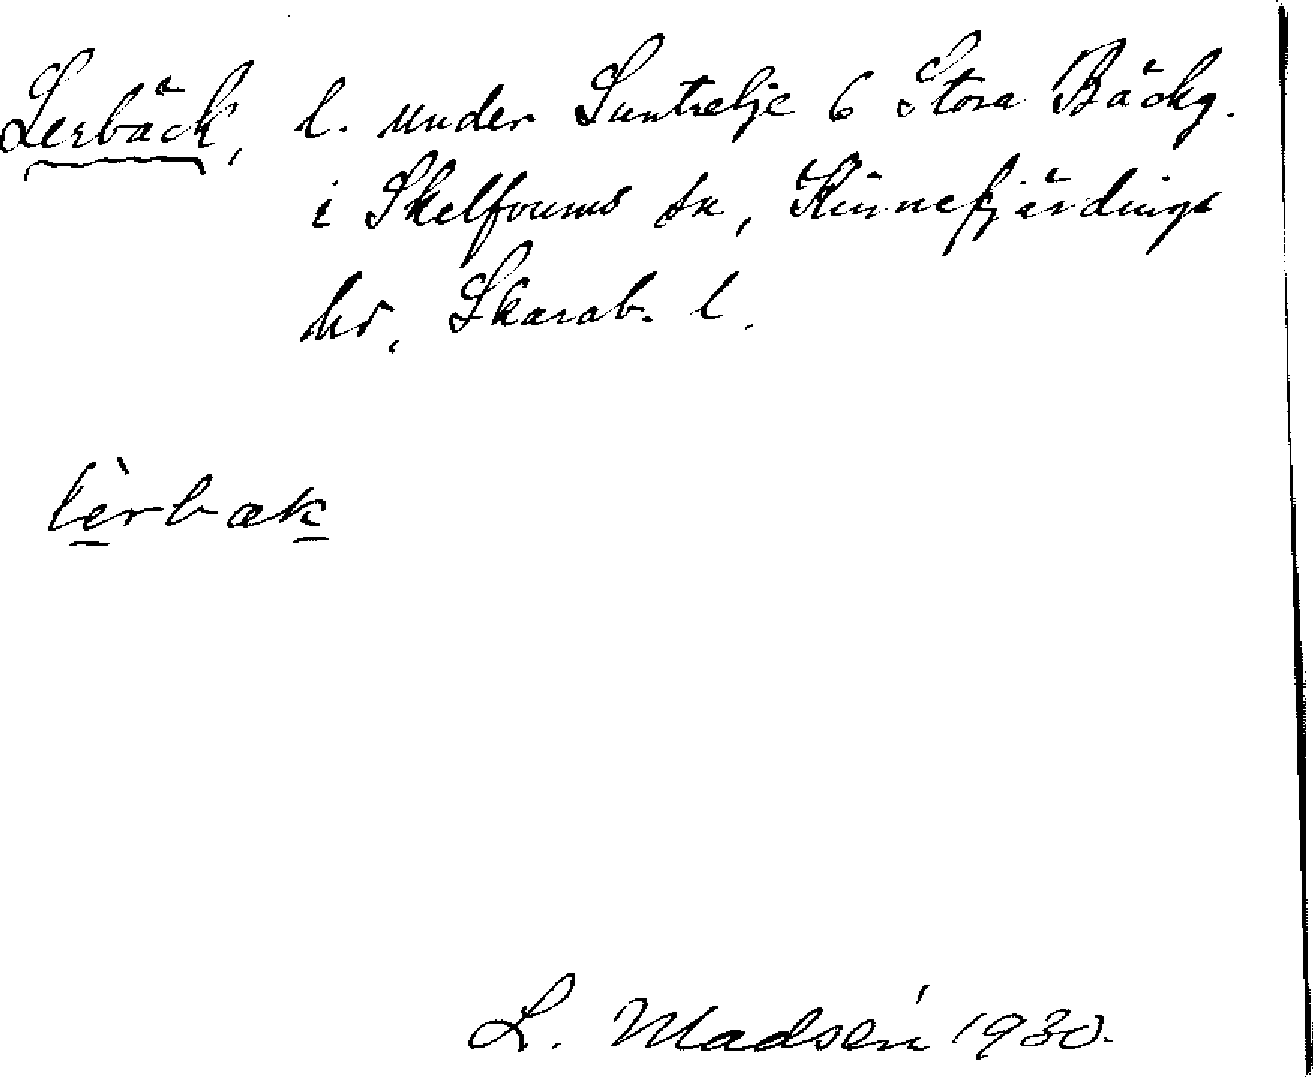 Lerbäck, l. under Suntrelje 6 Stora Bäckg.
i Skelfvums sn, Kinnefjärdings
hd, Skarab. l.
lèrbæk
L. Madsén 1930.